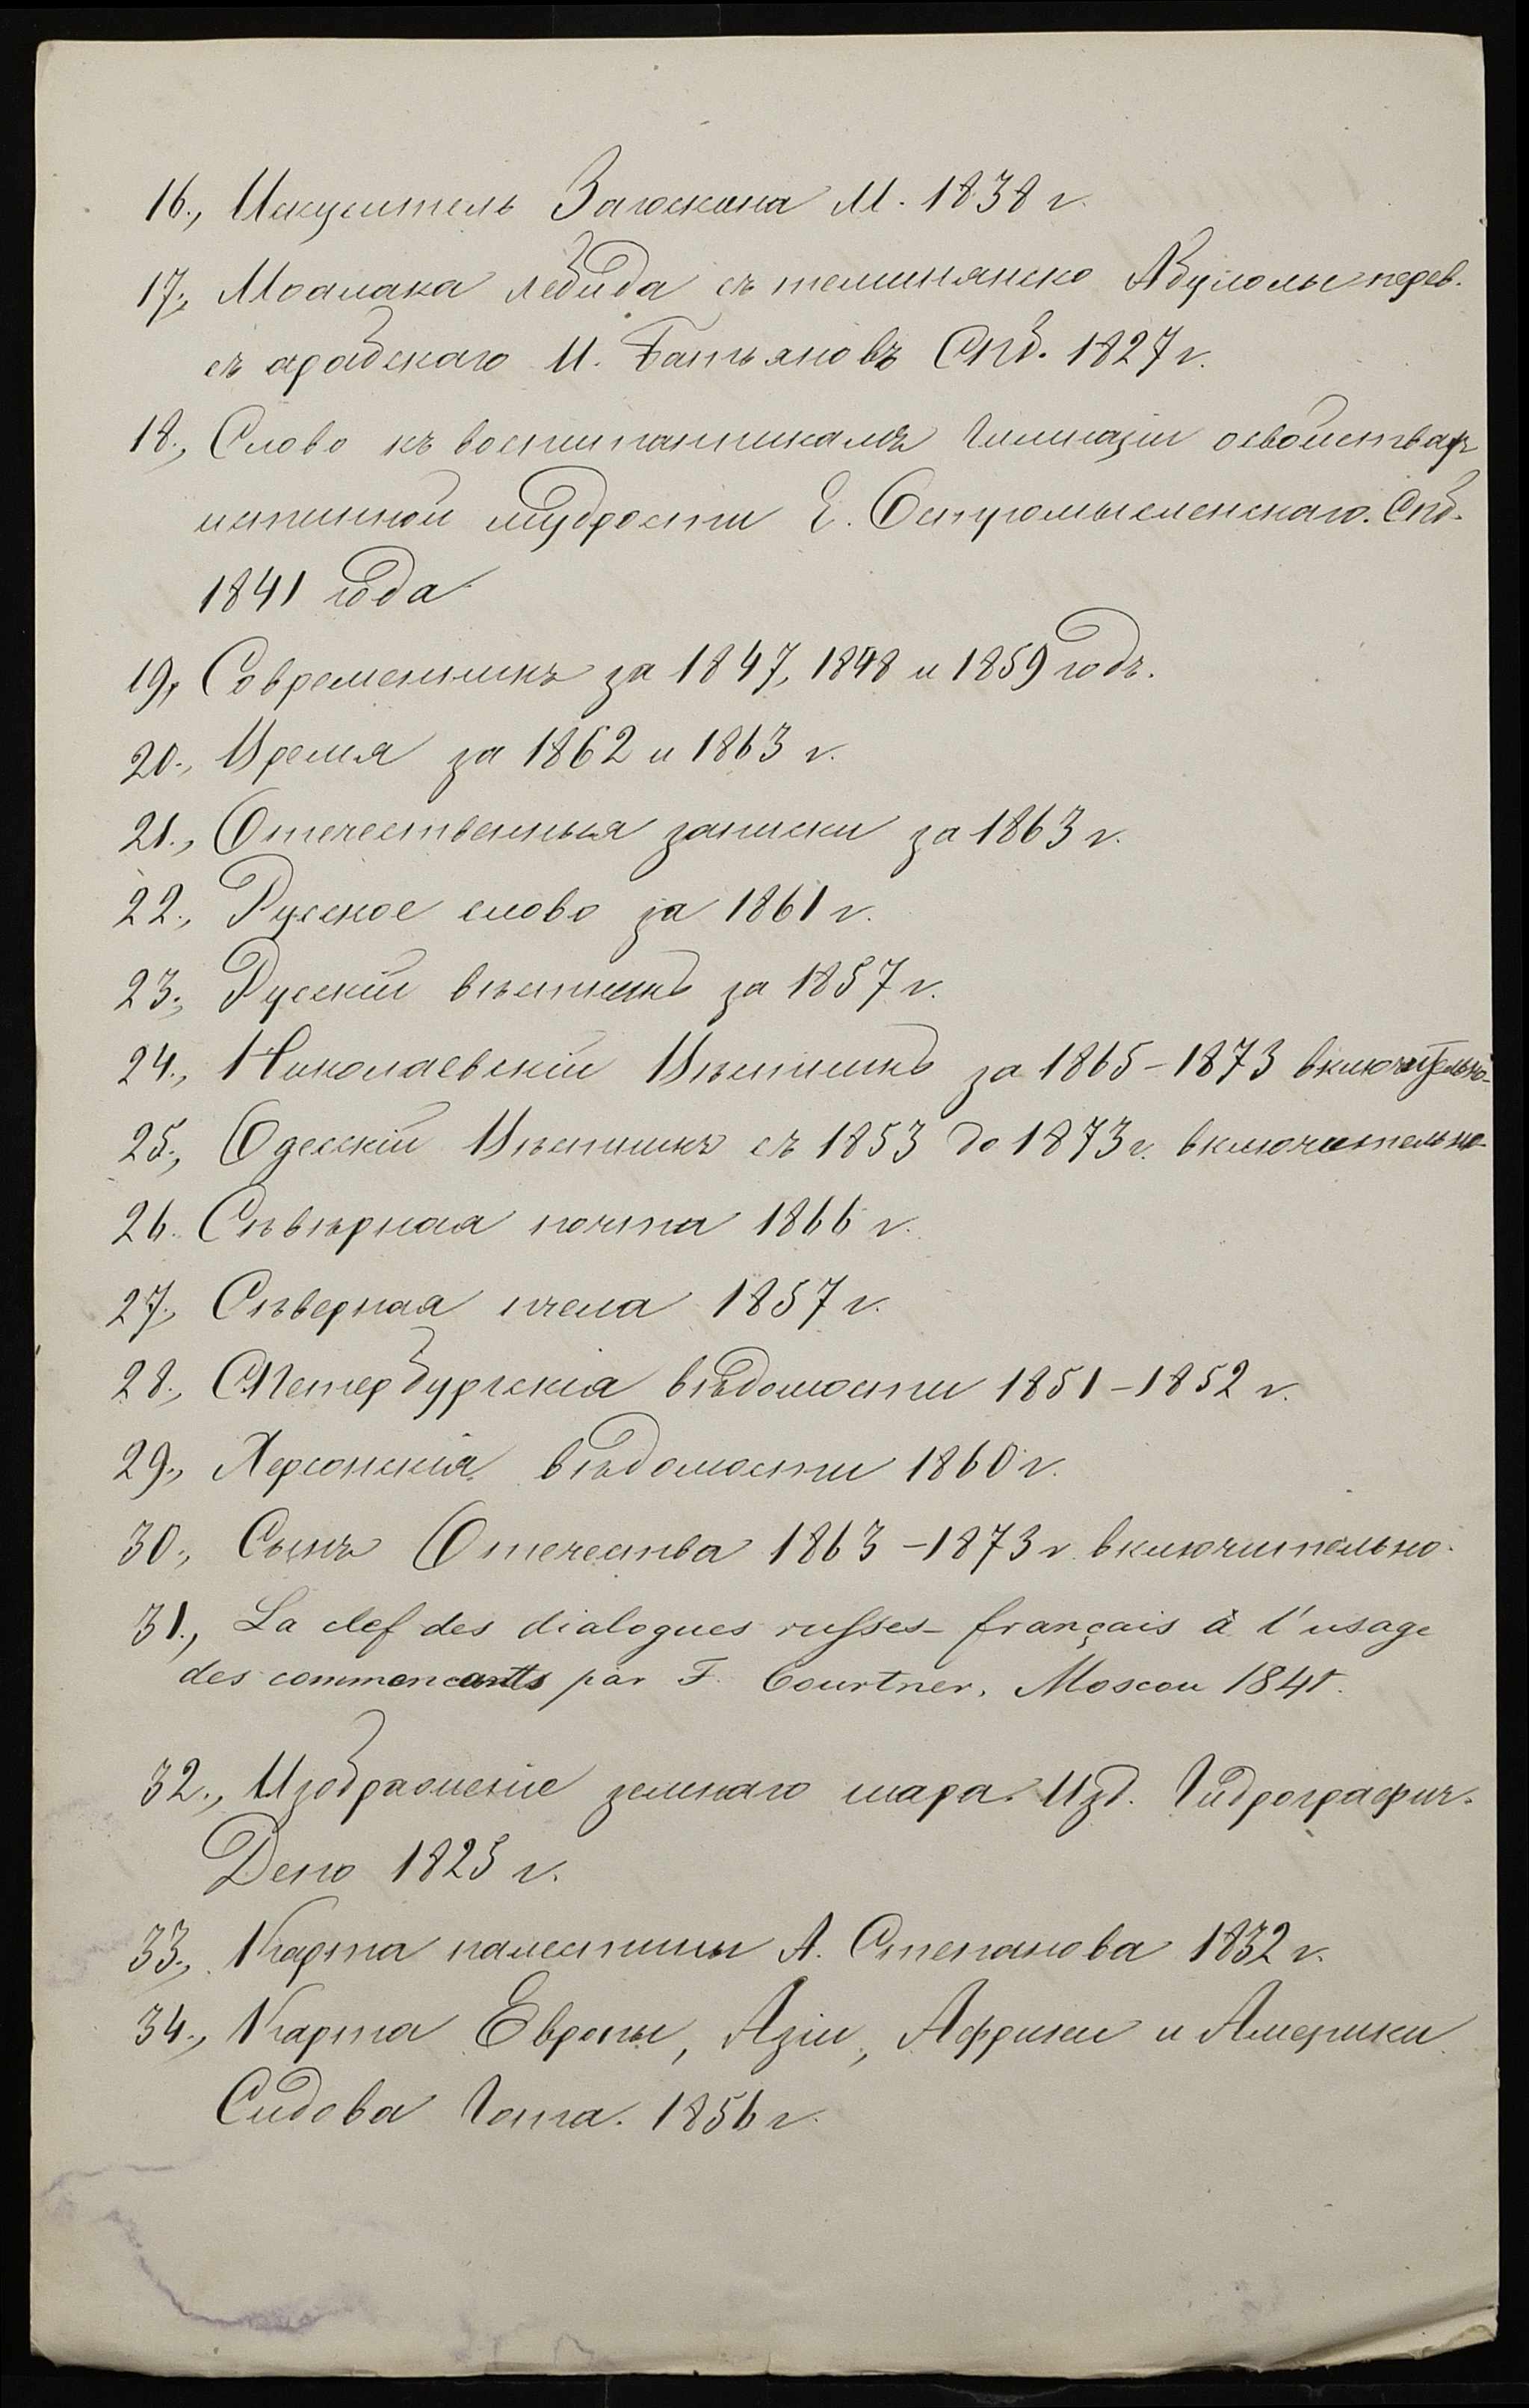 16., Искуситель Загоскина М. 1838 г.
17., Моалака Лебида съ теминянско Абулолы перев.
съ арабскаго И. Батьяновъ Спб. 1827 г.
18., Слово къ воспитанникамъ Гимназіи о свойствахъ
истинной мудрости Е. Остромысленскаго. Спб.
1841 года
19, Современникъ за 1847, 1848 и 1859 годъ.
20., Время за 1862 и 1863 г.
21., Отечественныя записки за 1863 г.
22., Русское слово за 1861 г.
23., Русскій вѣстникъ за 1857 г.
24., Николаевскій Вѣстникъ за 1865-1873 включительно
25., Одесскій Вѣстникъ съ 1853 до 1873 г. включительно
26. Сѣвѣрная почта 1866 г.
27., Сѣверная пчела 1857 г.
28., СПетербургскія вѣдомости 1851-1852 г.
29., Херсонскія вѣдомости 1860 г.
30., Сынъ Отечества 1863-1873 г. включительно.
31., La clef des dialogues russes-français à l'usage
des commencants par F. Courtner, Moscou 1841.
32., Изображеніе земнаго шара. Изд. Гидрографич.
Депо 1825 г.
33., Карта палестины А. Степанова 1832 г.
34., Карта Европы, Азіи, Африки и Америки
Сидова Гота. 1856 г.